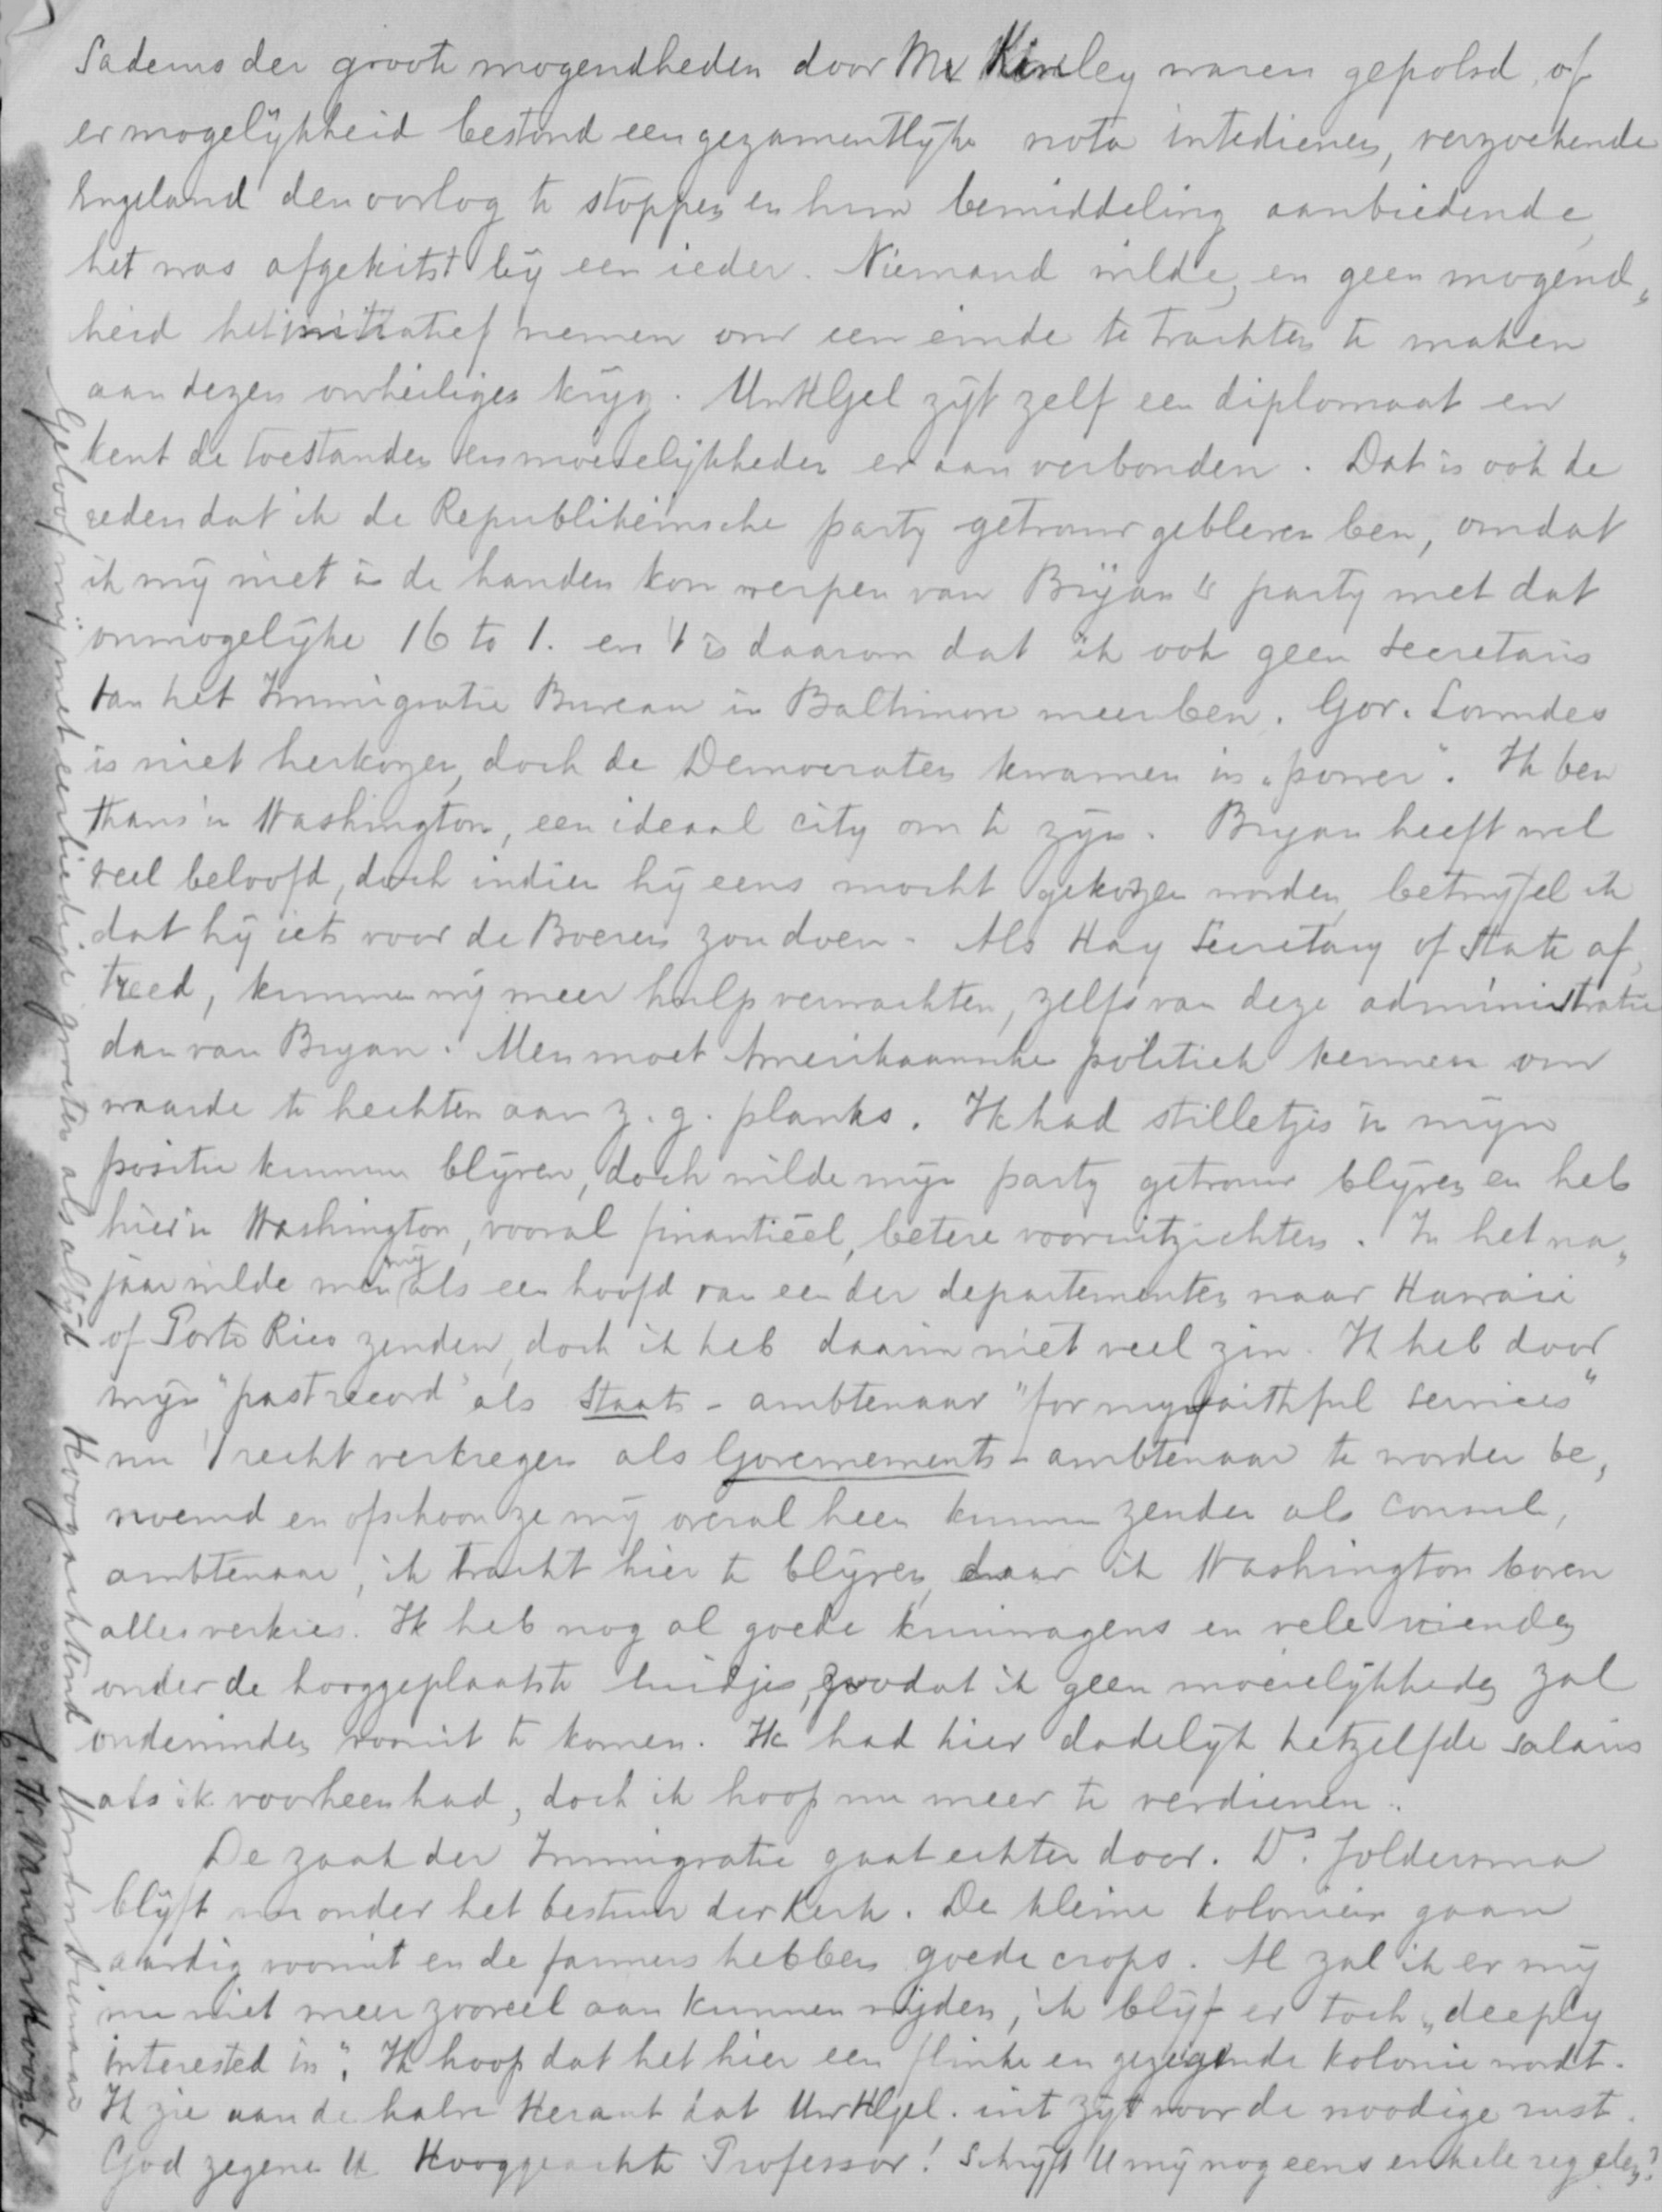 Sadems der groote mogendheden door Mc Kinley waren gepolsd, of
er mogelijkheid bestond een gezamentlijke nota intedienen, verzoekende
Engeland den oorlog te stoppen en hun bemiddeling aanbiedende,
het was afgeketst bij een ieder. Niemand wilde, en geen mogend„
heid het initiatief nemen om een einde te trachten te maken
aan dezen onheiligen krijg. UwHlgel zijt zelf een diplomaat en
kent de toestanden en moeielijkheden er aan verbonden. Dat is ook de
reden dat ik de Republikeinsche party getrouw gebleven ben, omdat
ik mij niet in de handen kon werpen van Bryan's party met dat
onmogelijke 16 to 1. en 't is daarom dat ik ook geen Secretaris
van het Immigratie Bureau in Baltimore meer ben. Gov. Lowndes
is niet herkozen, doch de Democraten kwamen in „power". Ik ben
thans in Washington, een ideaal city om te zijn. Bryan heeft wel
veel beloofd, doch indien hij eens mocht gekozen worden, betwijfel ik
dat hij iets voor de Boeren zou doen. Als Hay Secretary of State af„
treed, kunnen wij meer hulp verwachten, zelfs van deze administratie
dan van Bryan. Men moet Amerikaansche politiek kennen om
waarde te hechten aan z.g. planks. Ik had stilletjes in mijn
positie kunnen blijven, doch wilde mijn party getrouw blijven en heb
hier in Washington, vooral finantiëel, betere vooruitzichten. In het na„
jaar wilde men mij als een hoofd van een der departementen naar Hawaii
of Porto Rico zenden, doch ik heb daarin niet veel zin. Ik heb door
mijn "past record" als Staats-ambtenaar "for my faithful services"
nu 't recht verkregen als Governements-ambtenaar te worden be„
noemd en ofschoon ze mij overal heen kunnen zenden als consul,
ambtenaar, ik tracht hier te blijven, daar ik Washington boven
alles verkies. Ik heb nog al goede kruiwagens en vele vrienden
onder de hooggeplaatste luidjes, zoodat ik geen moeielijkheden zal
ondervinden vooruit te komen. Ik had hier dadelijk hetzelfde salaris
als ik voorheen had, doch ik hoop nu meer te verdienen.
De zaak der Immigratie gaat echter door. Ds. Joldersma
blijft nu onder het bestuur der Kerk. De kleine kolonien gaan
aardig vooruit en de farmers hebben goede crops. Al zal ik er mij
nu niet meer zooveel aan kunnen wijden, ik blijf er toch „deeply
interested in". Ik hoop dat het hier een flinke en gezegende kolonie wordt.
Ik zie aan de halve Heraut dat UwHlgel. uit zijt voor de noodige rust.
God zegene U Hooggeachte Professor! Schrijft U mij nog eens enkele regelen?
Geloof mij met eerbiedige groeten als altijd Hoogachtend Uw dw dienaar
J. H. Vanderhoogt